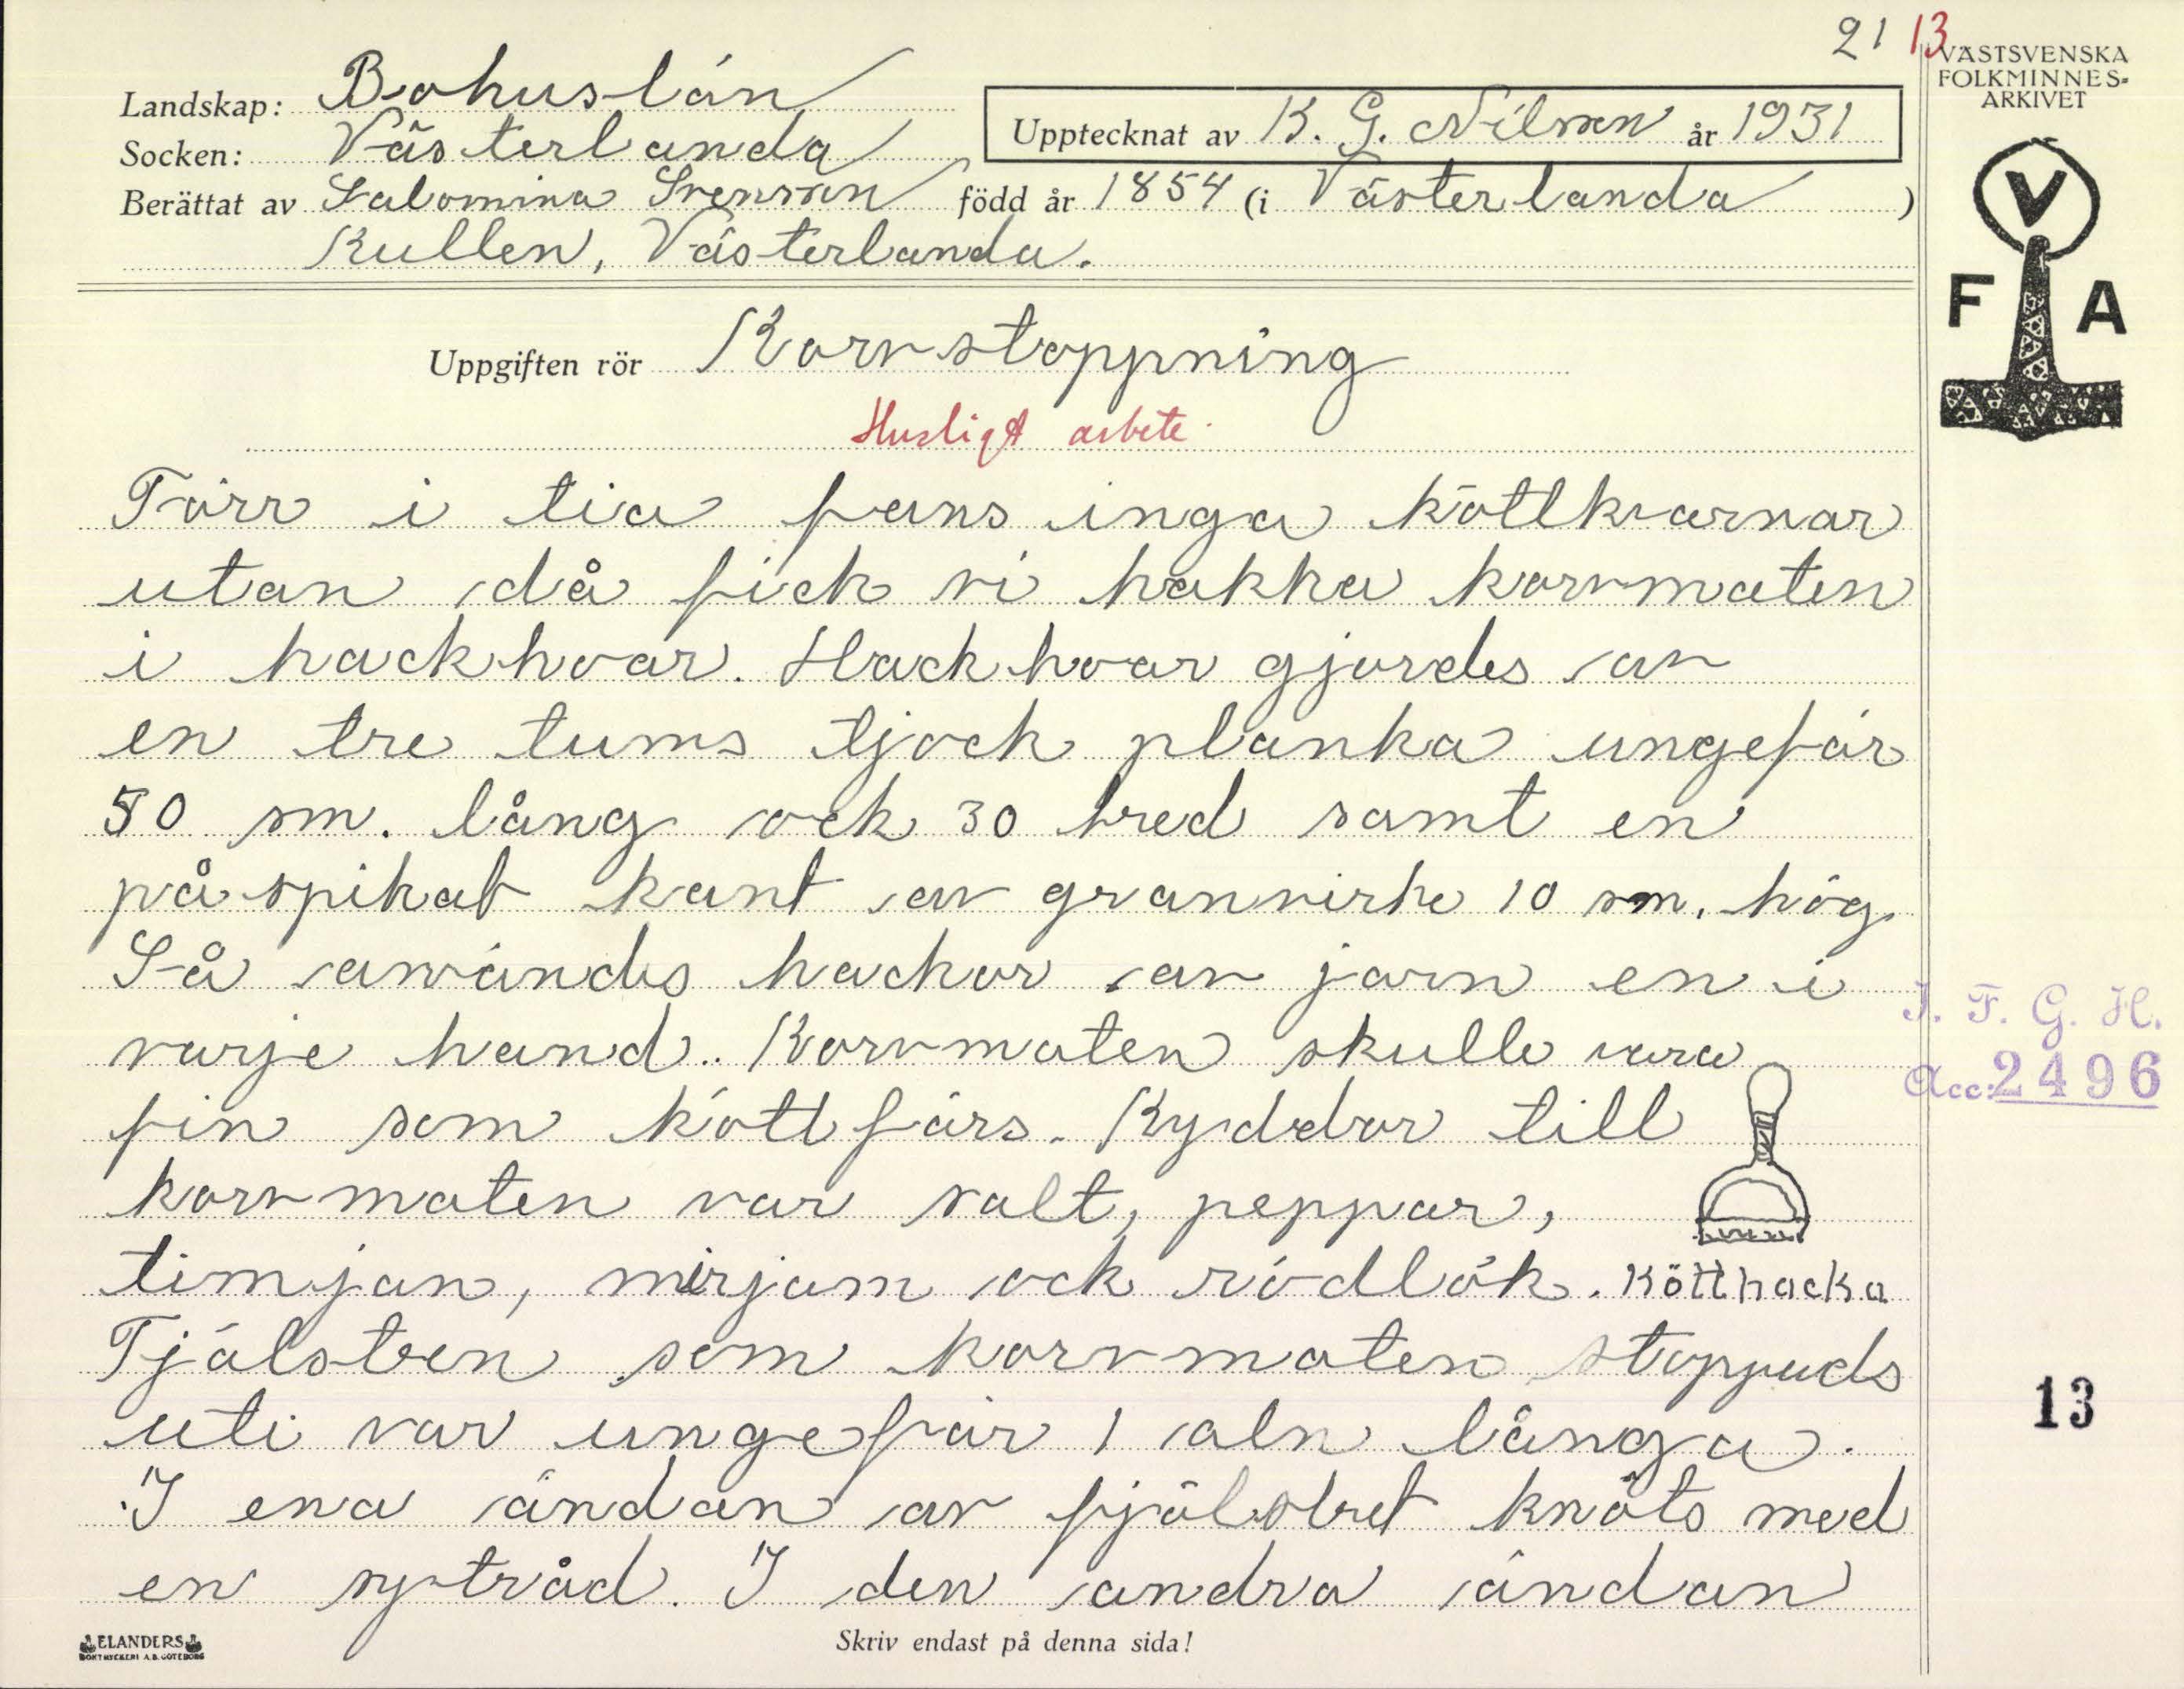 21 13
VÄSTSVENSKA
FOLKMINNES-
ARKIVET
Landskap: Bohuslän
Upptecknat av K. G. Nilson år 1931
Socken: Västerlanda
Berättat av Salomina Svenson född år 1854 (i Västerlanda )
Kullen, Västerlanda.
V
F A
Uppgiften rör Korvstoppning
Husligt arbete.
Förr i tia fans inga köttkvarnar
utan då fick vi hakka korvmaten
i hackhoar. Hackhoar gjordes av
en tre tums tjock planka ungefär
50 sm. lång ock 30 bred samt en
påspikat kant av granvirke 10 sm. hög.
Så användes hackor av järn en i
varje hand. Korvmaten skulle vara
fin som köttfärs. Kyddor till
korvmaten var salt, peppar,
timjan, mirjam ock rödlök. Kötthacka
Tjälstren som korvmaten stoppads
uti var ungefär 1 aln långa.
I ena ändan av fjälstret knöts med
en sytråd. I den andra ändan
J. F. G. H.
Acc: 2496
13
ELANDERS
BOKTRYCKERI A.B. GÖTEBORG
Skriv endast på denna sida!